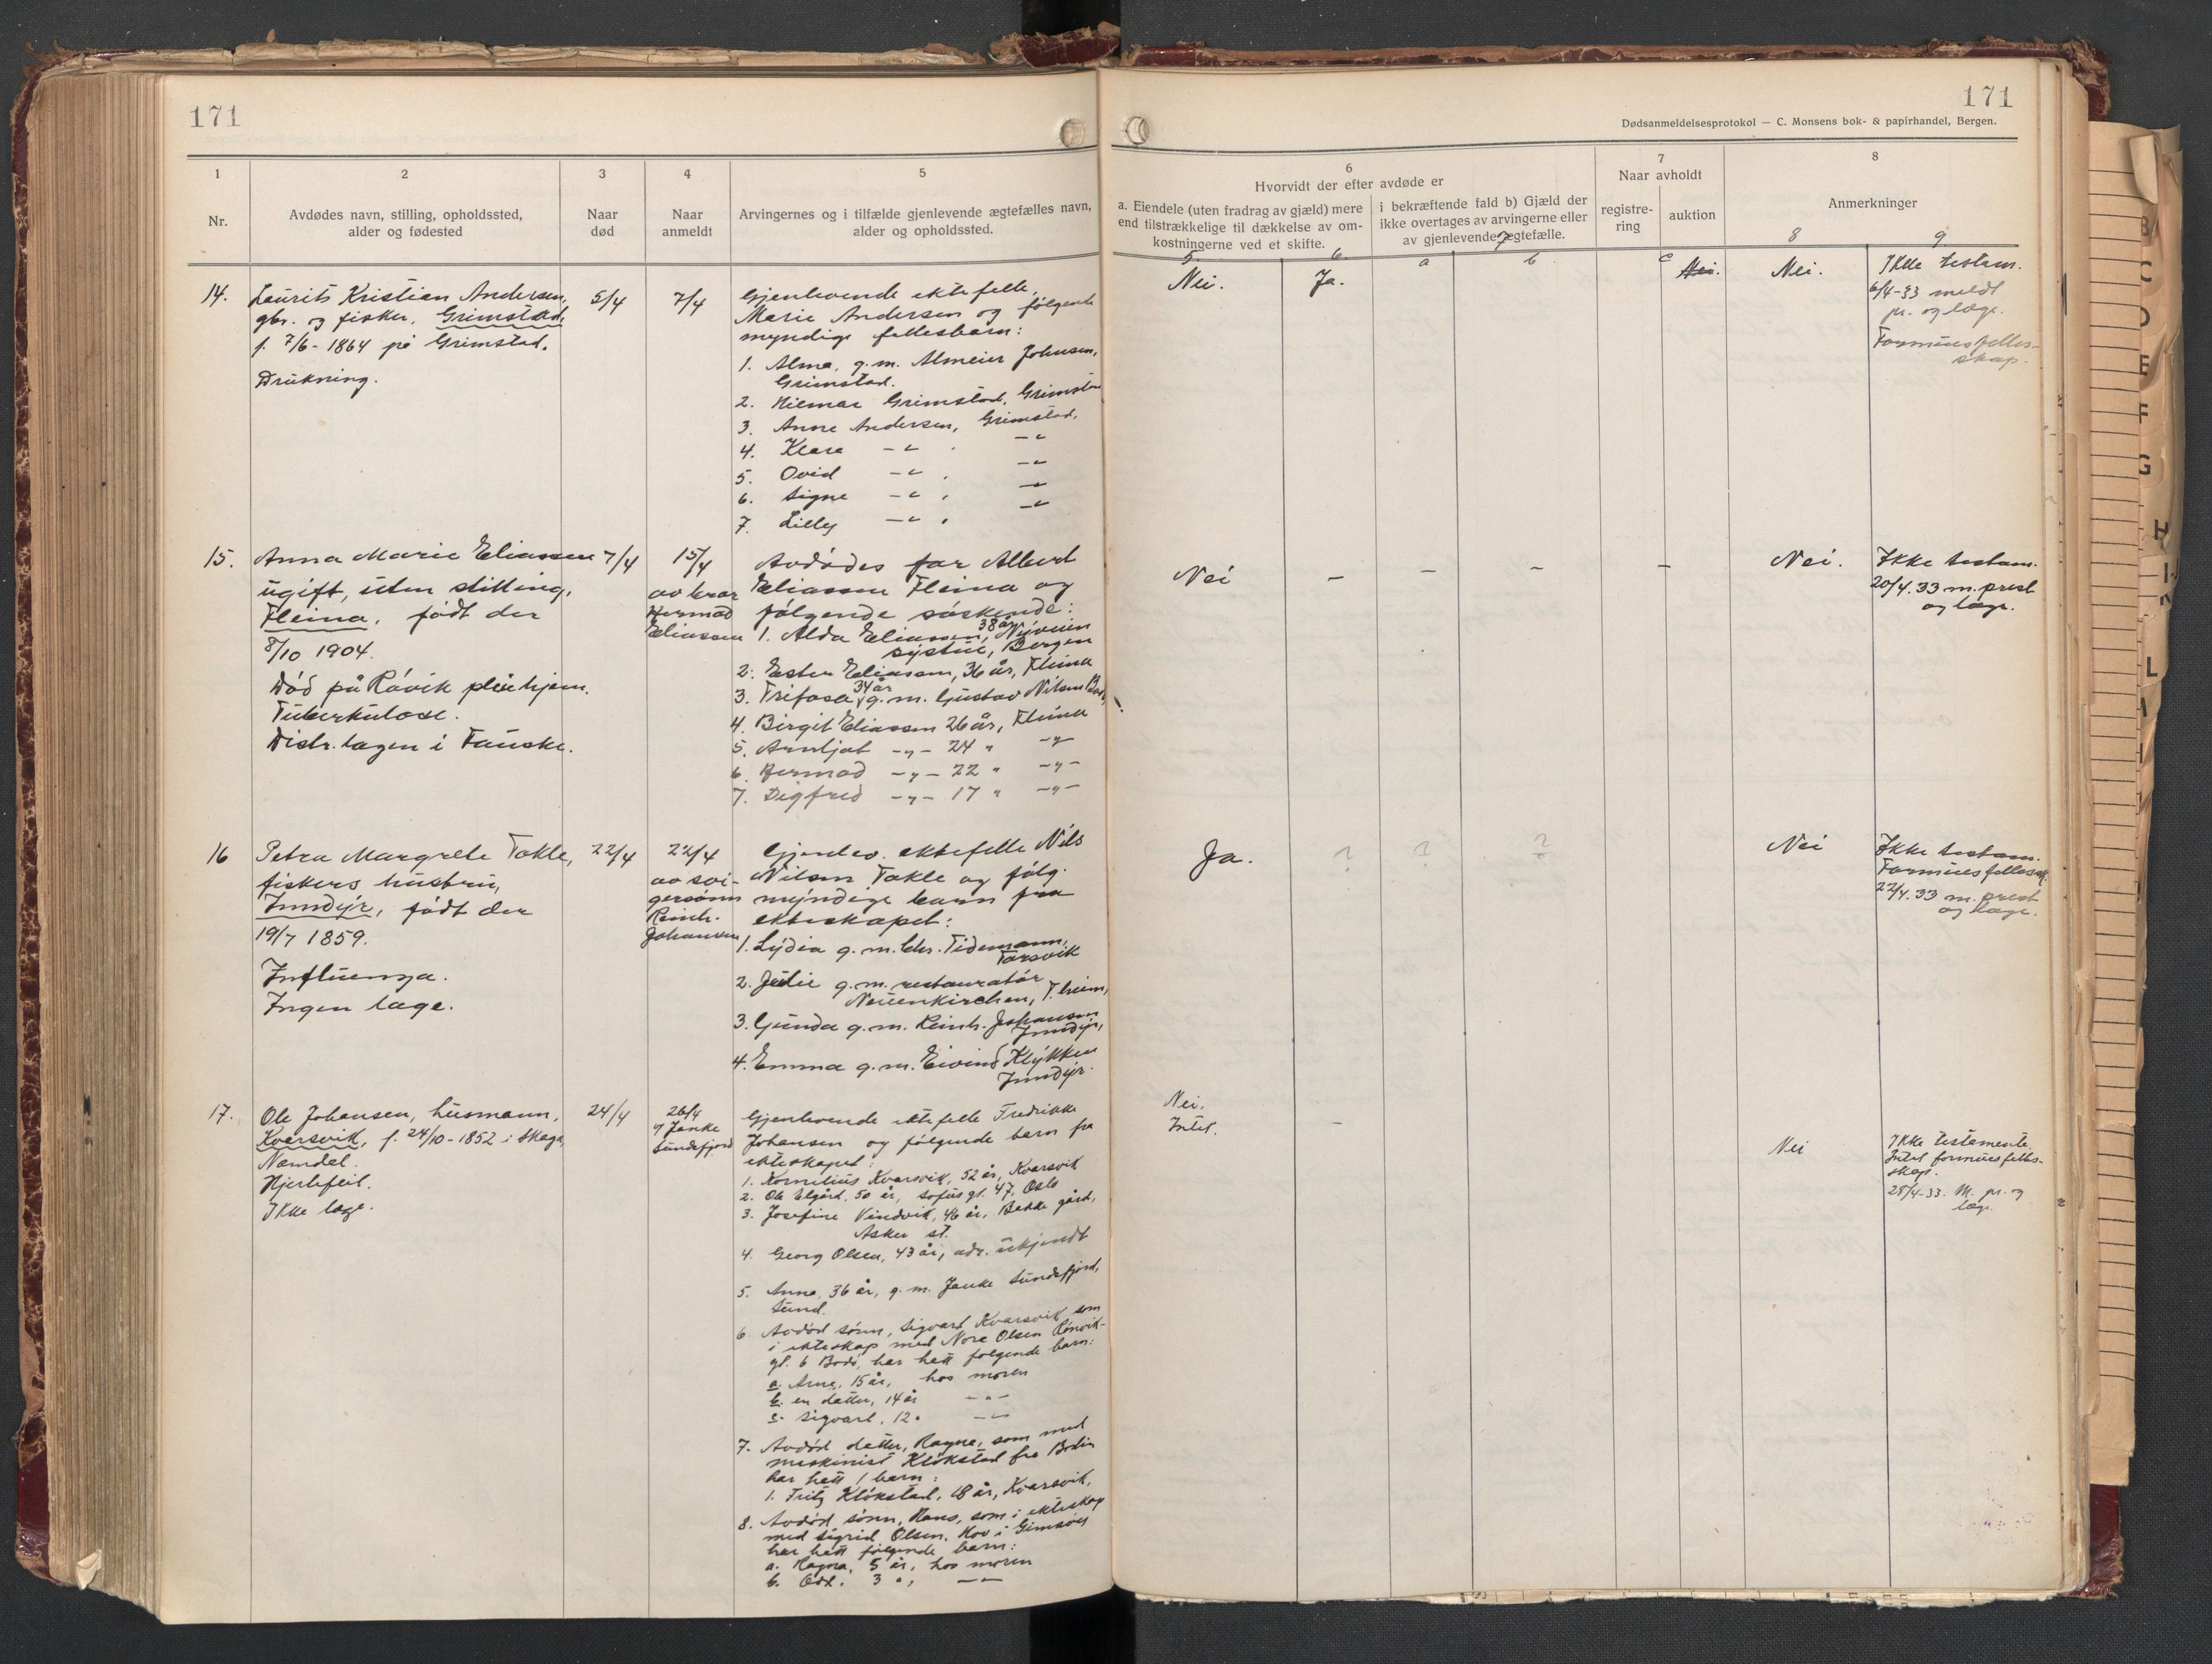 171
171
Dødsanmeldelsesprotokol — C. Monsens bok- & papirhandel, Bergen.
1
Nr.
2
Avdødes navn, stilling, opholdssted,
alder og fødested
3
Naar
død
4
Naar
anmeldt
5
Arvingernes og i tilfælde gjenlevende ægtefælles navn,
alder og opholdssted.
6
Hvorvidt der efter avdøde er
a. Eiendele (uten fradrag av gjæld) mere
end tilstrækkelige til dækkelse av om-
kostningerne ved et skifte.
i bekræftende fald b) Gjæld der
ikke overtages av arvingerne eller
av gjenlevende ægtefælle.
7
Naar avholdt
registre-
ring
auktion
8
Anmerkninger
5. 6. 7 a b c 8 9
14.
Laurits Kristian Andersen,
gbr. og fisker, Grimstad,
f. 7/6 - 1864 på Grimstad.
Drukning.
5/4
7/4
Gjenlevende ektefelle,
Marie Andersen og følgende
myndige fellesbarn:
1. Alma, g.m. Almeier Johnsen,
Grimstad.
2. Hilmar Grimstad,
3. Anna Andersen, Grimstad,
4. Klara -"- , -"
5. Ovid -"- , -"
6. Signe -"- , -"
7. Lilly -"- , -"
Nei.
Ja.
Nei.
Nei.
Ikke testam.
6/4-33 meldt
pr. og læge.
Formuesfelles-
skap.
15.
Anna Marie Eliassen
ugift, uten stilling,
Fleina, født den
8/10 1904.
Død på Røvik pleiehjem.
Tuberkulose.
Distr. lægen i Fauske.
7/4
15/4
av bror
Hermod
Eliassen
Avdødes far Albert
Eliassen Fleina og
følgende søskende:
1. Alda Eliassen, 38 år, Nyveien
systue, Bergen
2. Ester Eliassen, 36 år, Fleina
3. Trifosa, 34 år g.m. Gustav Nilsen
4. Birgit Eliassen 26 år, Fleina
5. Arnljot -"- 24 " -"-
6. Hermod -"- 22 " -"-
7. Sigfred -"- 17 " -"-
Nei
–
–
–
–
Nei.
Ikke testam.
20/4.33 m. prest
og læge.
16
Petra Margrete Takle,
fiskers hustru,
Inndyr, født den
19/7 1859.
Influensa.
Ingen læge.
22/4
22/4
av svi-
gersønn
Reinh.
Johansen
Gjenlev. ektefelle Nils
Nilsen Takle og følg.
myndige barn fra
ekteskapet:
1. Lydia g.m. Chr. Tidemann,
Tårsvik
2. Julie g.m. restauratør
Neuenkirchen, T.heim,
3. Gunda g.m. Reinh. Johansen
Inndyr,
4. Emma g.m. Eivind Klykken
Inndyr.
Ja.
?
?
?
Nei
Ikke testam.
Formuesfellessk.
22/4.33 m. prest
og læge.
17.
Ole Johansen, husmann,
Kvarsvik, f. 24/10-1852 i Skage,
Namdal.
Hjertefeil.
Ikke læge.
24/4
26/4
v/ Janke
Sundsfjord
Gjenlevende ektefelle Fredrikke
Johansen og følgende barn fra
ekteskapet:
1. Kornelius Kvarsvik, 52 år, Kvarsvik
2. Ole Elgård, 50 år, Sofusgt. 47, Oslo
3. Josefine Vindvik, 46 år, Bakke gård,
Asker st.
4. Georg Olsen, 43 år, adr. ukjendt
5. Anna, 36 år, g.m. Janke Sundsfjord,
Sund.
6. Avdød sønn, Sigvart Kvarsvik, som
i ekteskap med Nora Olsen Rønvik-
gt. 6 Bodø, har hatt følgende barn:
a. Arne, 15 år, hos moren
b. en datter, 14 år -"-
c. Sigvart, 12 " -"-
7. Avdød datter, Ragna, som med
maskinist Klokstad fra Bodin
har hatt 1 barn:
1. Fritz Klokstad, 18 år, Kvarsvik,
8. Avdød sønn, Hans, som i ekteskap
med Sigrid Olsen, Hov i Gimsøy
har hatt følgende barn:
a. Ragna, 5 år, hos moren
b. Odd, 3 ", -"-
Nei.
Intet.
–
Nei
Ikke testamente.
Intet formuesfelles-
skap.
28/4-33. M. pr. og
læge.
B
C
D
E
F
G
H
L